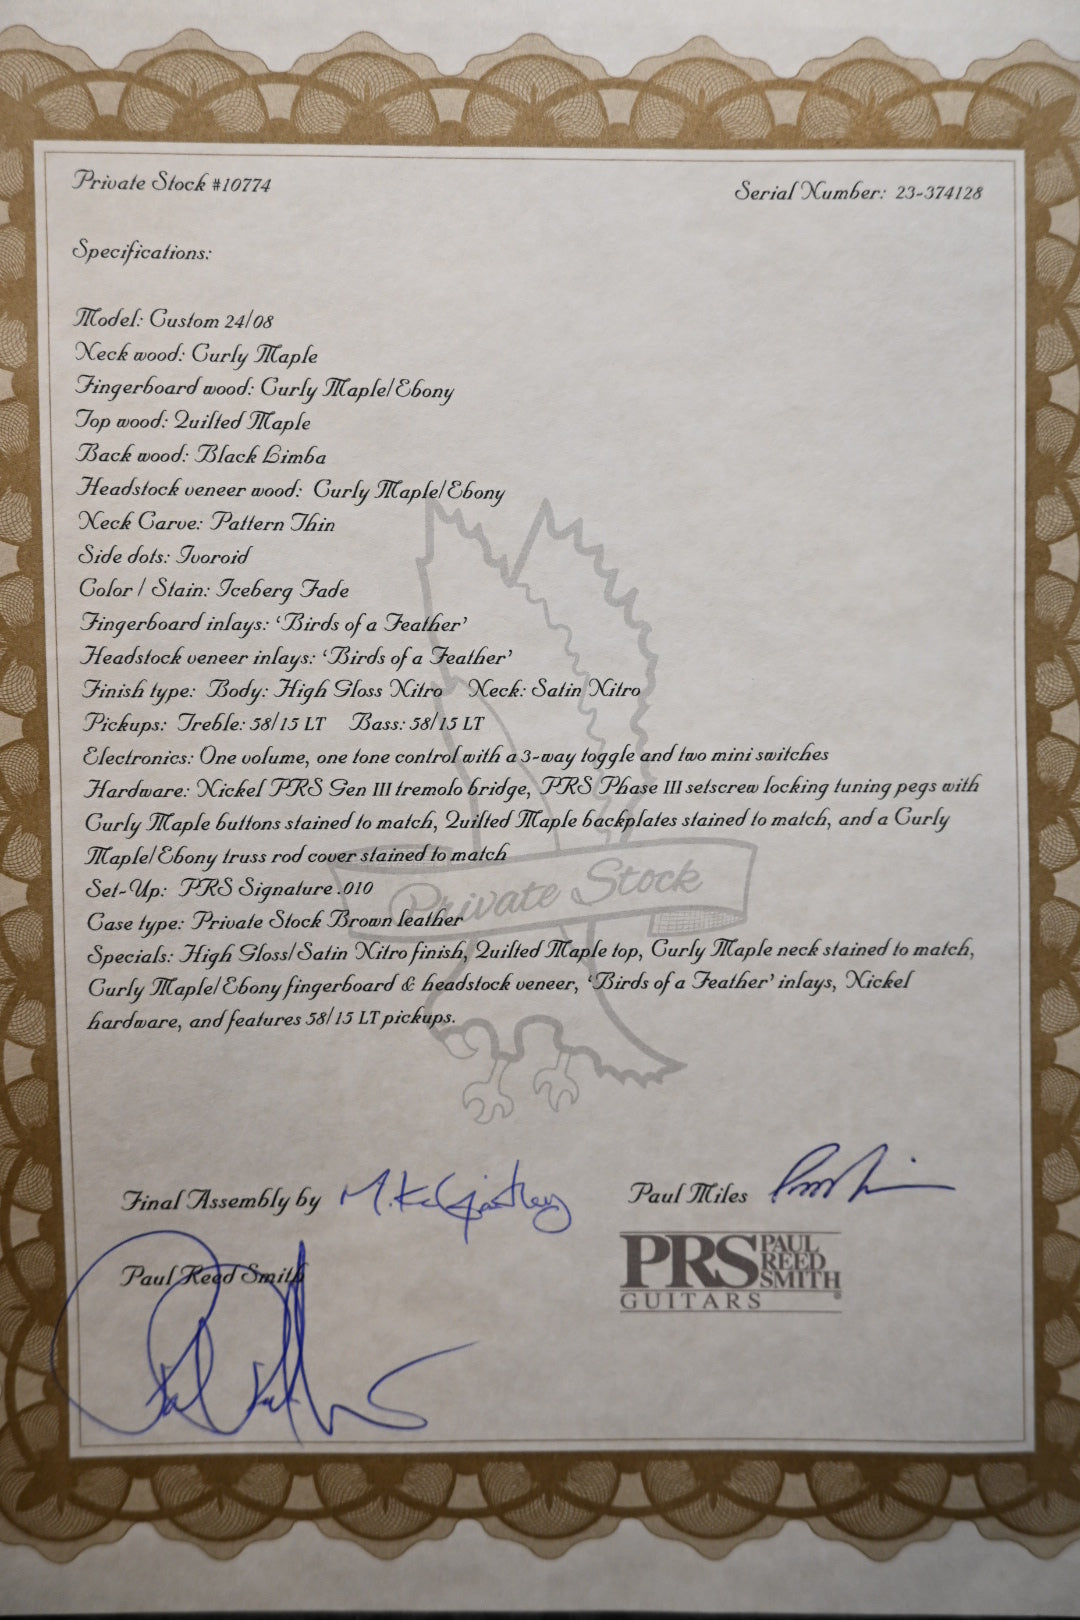 Private Stock #10774
Serial Number: 23-374128
Specifications:
Model: Custom 24/08
Neck wood: Curly Maple
Fingerboard wood: Curly Maple/Ebony
Top wood: Quilted Maple
Back wood: Black Limba
Headstock veneer wood: Curly Maple/Ebony
Neck Carve: Pattern Thin
Side dots: Ivoroid
Color / Stain: Iceberg Fade
Fingerboard inlays: ‘Birds of a Feather’
Headstock veneer inlays: ‘Birds of a Feather’
Finish type: Body: High Gloss Nitro Neck: Satin Nitro
Pickups: Treble: 58/15 LT Bass: 58/15 LT
Electronics: One volume, one tone control with a 3-way toggle and two mini switches
Hardware: Nickel PRS Gen III tremolo bridge, PRS Phase III setscrew locking tuning pegs with
Curly Maple buttons stained to match, Quilted Maple backplates stained to match, and a Curly
Maple/Ebony truss rod cover stained to match
Set-Up: PRS Signature .010
Case type: Private Stock Brown leather
Private Stock
Specials: High Gloss/Satin Nitro finish, Quilted Maple top, Curly Maple neck stained to match,
Curly Maple/Ebony fingerboard & headstock veneer, ‘Birds of a Feather’ inlays, Nickel
hardware, and features 58/15 LT pickups.
Final Assembly by M.
Paul Miles
Paul Reed Smith
PRS PAUL REED SMITH
GUITARS